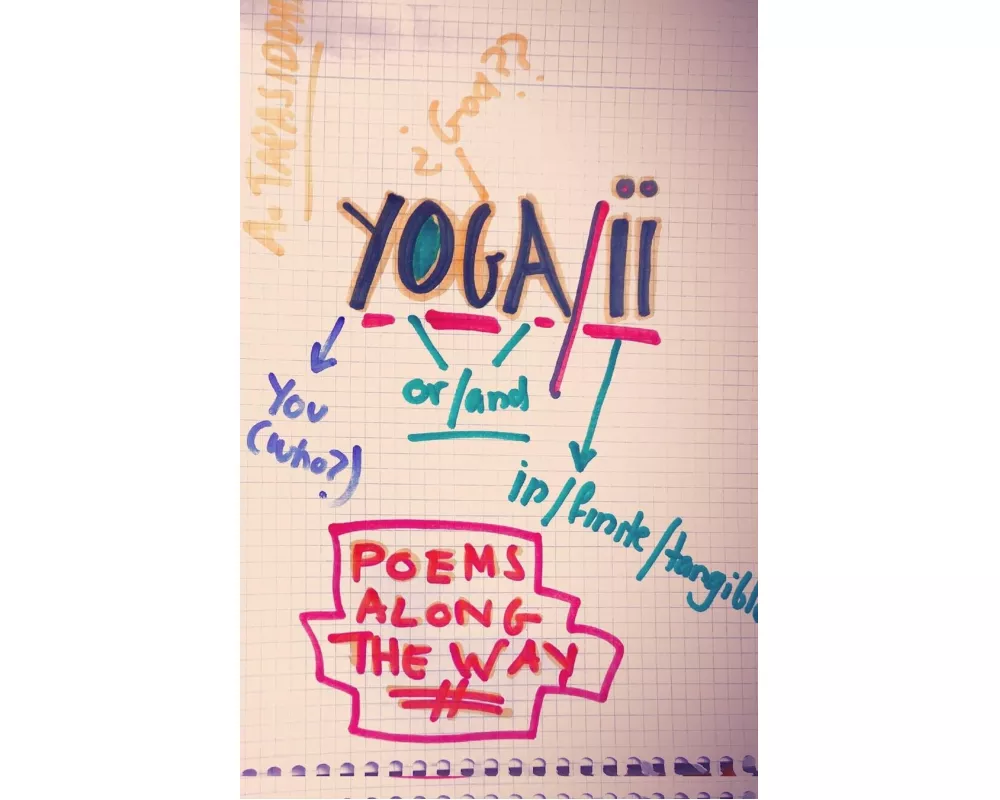 ¿Gods??
YOGA/ïï
You
(who?)
or/and
in/finite/tangible
POEMS
ALONG
THE WAY